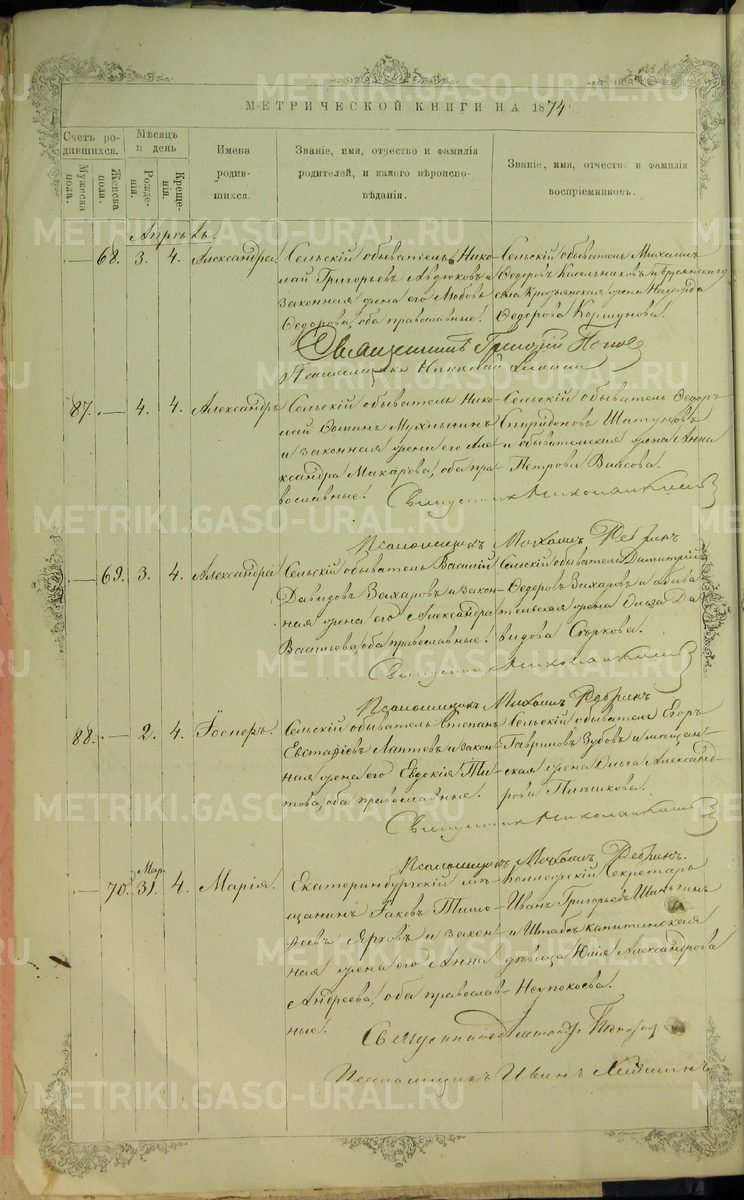 МЕТРИЧЕСКОЙ КНИГИ НА 1874
Счетъ родившихся.
Мужеска пола.
Женска пола.
Мѣсяцъ и день
Рожденія.
Крещенія.
Имена родившихся.
Званіе, имя, отчество и фамилія родителей, и какого вѣроисповѣданія.
Званіе, имя, отчество и фамилія воспріемниковъ.
Апрѣль.
68. 3. 4. Александра.
Сельскій обыватель Нико-
лай Григорьевъ Авдюковъ и
законная жена его Любовь
Ѳедорова, оба православные.
Сельскій обыватель Михаилъ
Ѳедоровъ Кисельниковъ и
села Крестьянская жена Надежда
Ѳедорова Коршунова.
Священникъ Григорій Поповъ
Псаломщикъ Николай
87. 4. 4. Александръ
Сельскій обыватель Нико-
лай Ѳоминъ Мухлынинъ
и законная жена его Але-
ксандра Макарова, оба пра-
вославные.
Сельскій обыватель Ѳедоръ
Спиридоновъ Шатуновъ
и обывательская жена Анна
Петрова Власова.
Священникъ Николай
Псаломщикъ Михаилъ Ребринъ
69. 3. 4. Александра
Сельскій обыватель Василій
Давидовъ Захаровъ и закон-
ная жена его Александра
Васильева, оба православные.
Сельскій обыватель Димитрій
Ѳедоровъ Захаровъ и обыва-
тельская жена Ольга Да-
видова Сыркова.
Священникъ Николай
Псаломщикъ Михаилъ Ребринъ
88. 2. 4. Іосифъ.
Сельскій обыватель Степанъ
Евстафіевъ Лаптевъ и закон-
ная жена его Евдокія Ти-
това, оба православные.
Сельскій обыватель Егоръ
Гавриловъ Зубовъ и мѣщан-
ская жена Ольга Александ-
рова Пичникова.
Священникъ Николай
Псаломщикъ Михаилъ Ребринъ.
70. Мар. 31. 4. Марія.
Екатеринбургскій мѣ-
щанинъ Іаковъ Тимо-
ѳеевъ Ярковъ и закон-
ная жена его Анна
Андреева, оба православ-
ные.
Коллежскій Секретарь
Иванъ Григорьевъ
и Штабсъ капитанская
дѣвица Юлія Александрова
Непокоева.
Псаломщикъ Иванъ
METRIKI.GASO-URAL.RU